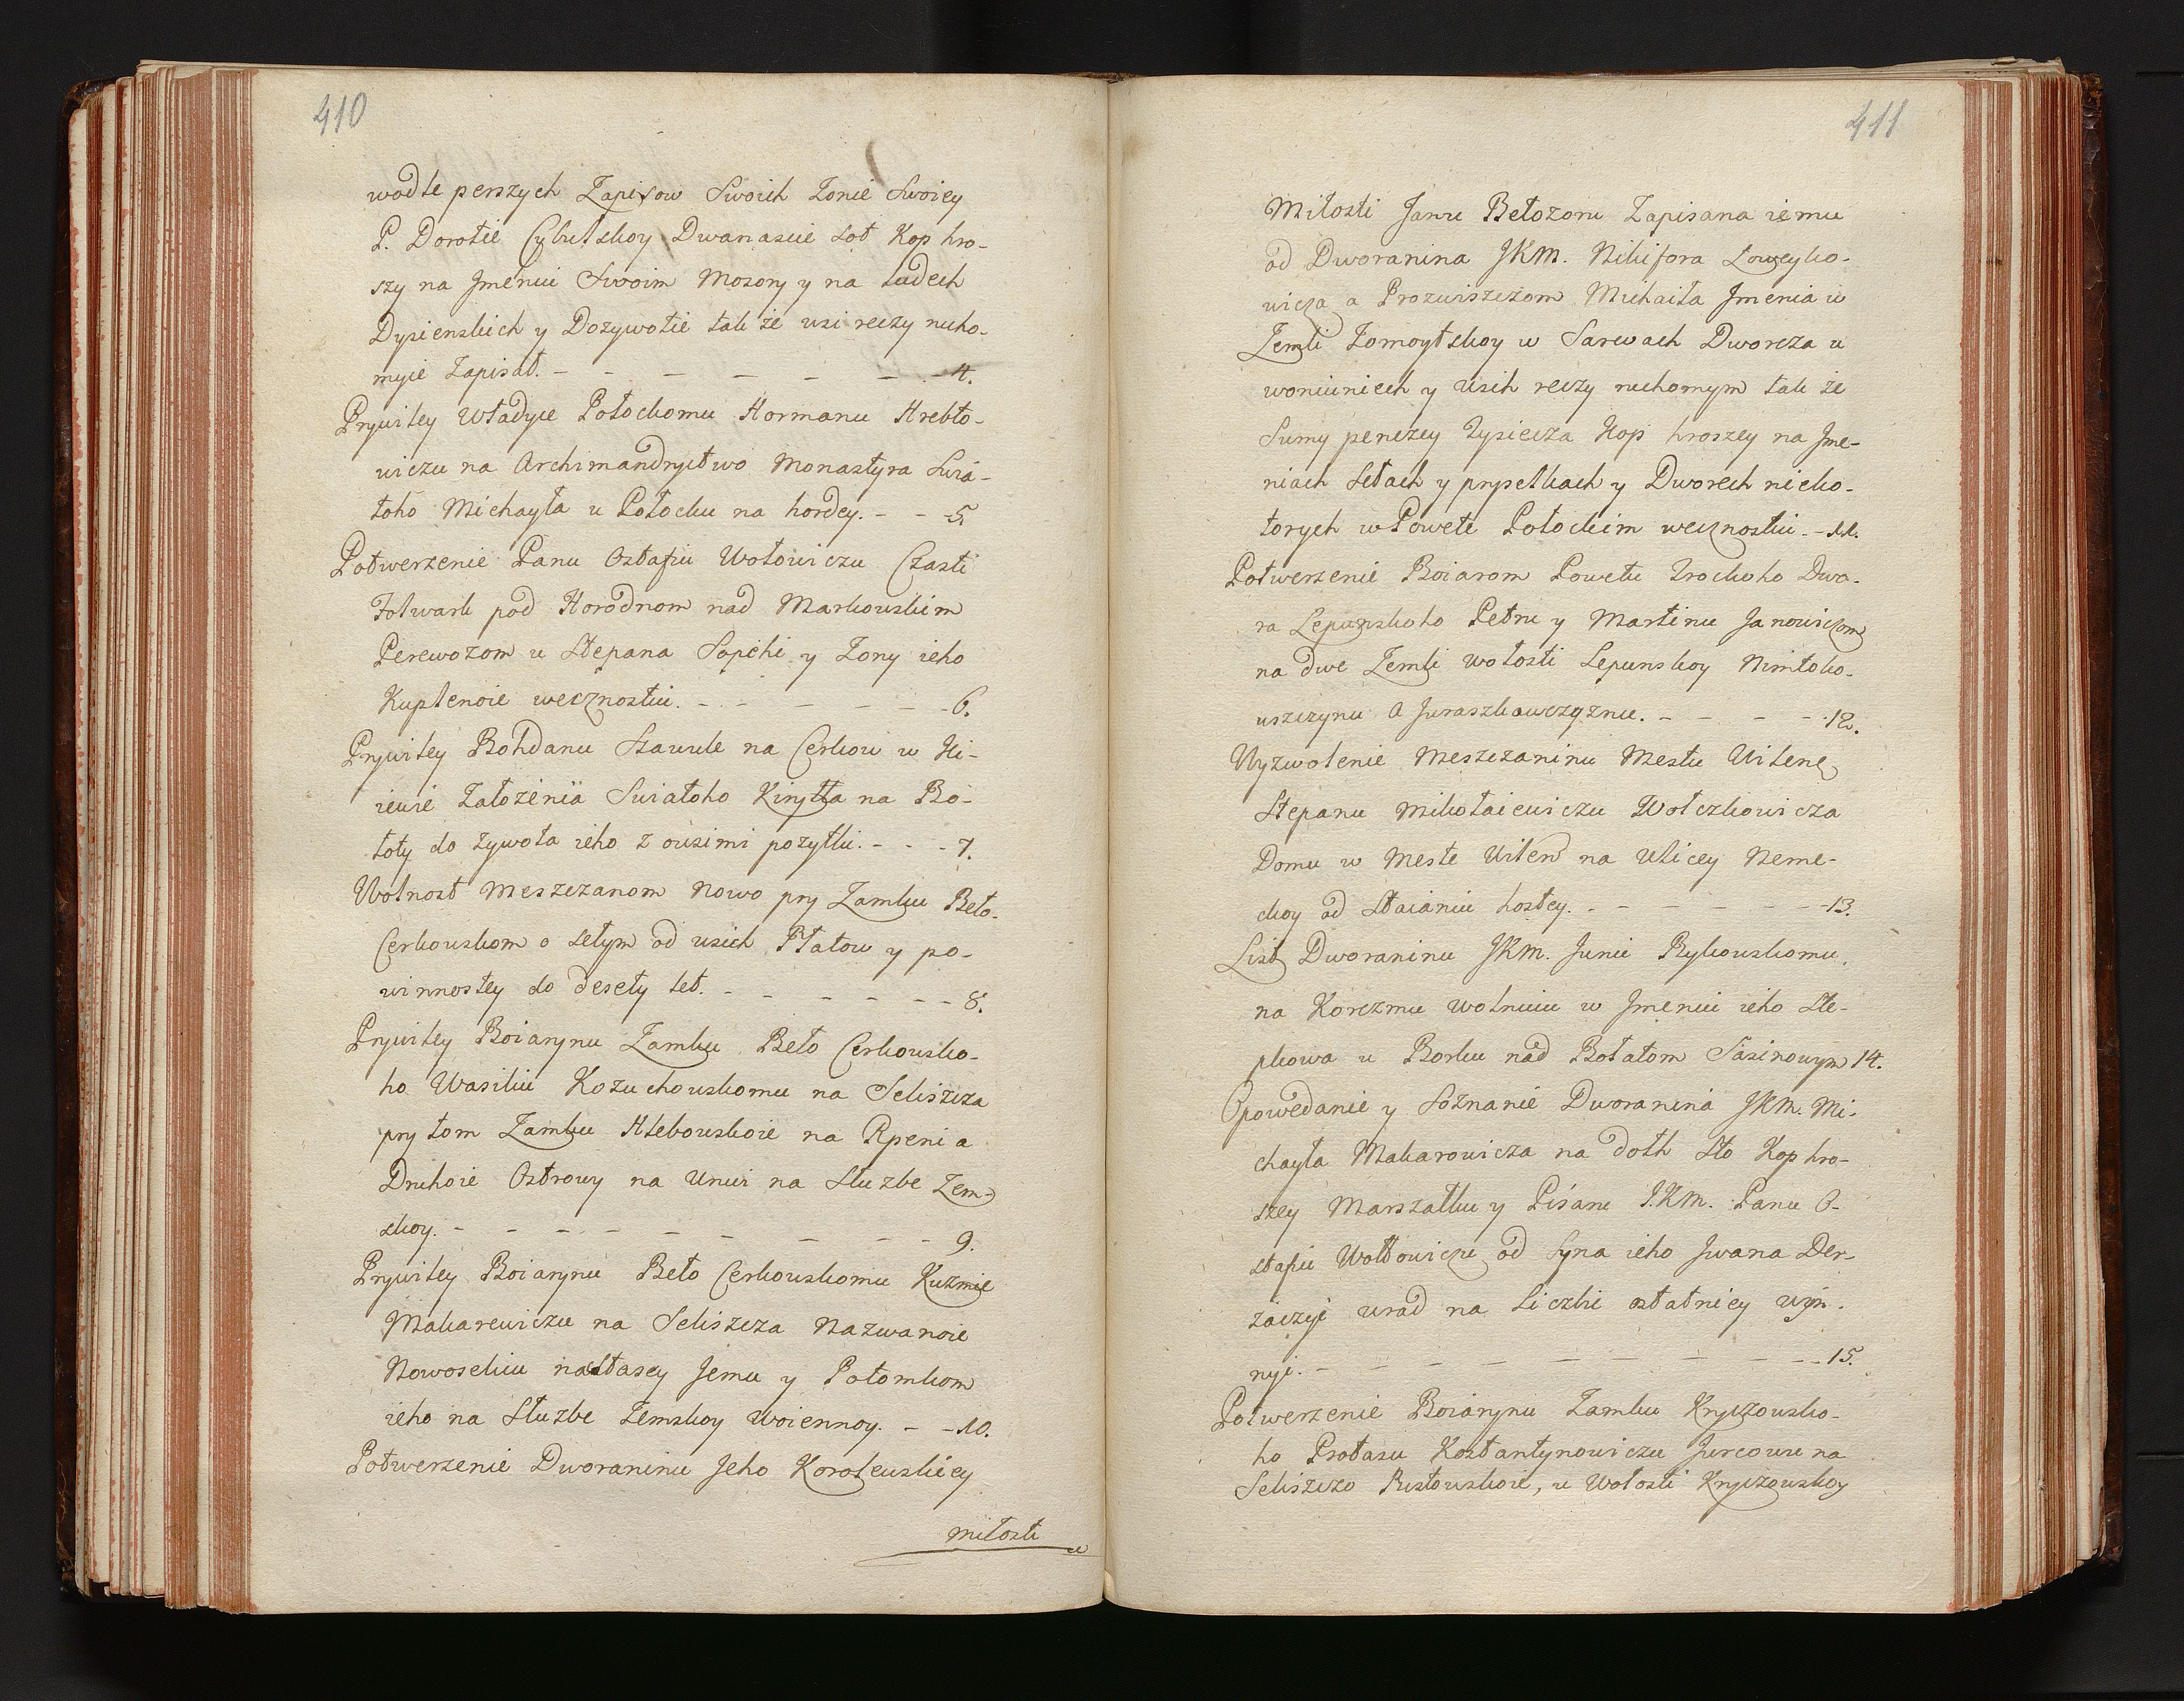 410
wodle perszych Zapisow Swoich Żonie Swoiey
P. Dorotie Cybulskoy Dwanascie Sot Kop hro-
szy na Jmeniu Swoim Mosory y na Ludech
Dysienskich y Dożywotie tak że wsi reczy rucho-
myie Zapisał. - - - - - - - 4.
Prywiley Władyce Połockomu Hermanu Hrebto-
wiczu na Archimandryctwo Monastyra Swia-
toho Michayła u Połocku na hordey. - - -5.
Potwerżenie Panu Ostafiu Wołowiczu Czasti
Folwark pod Horodnom nad Markowskim
Perewozom u Stepana Sopchi y Żony ieho
Kuplenoie wecznostiu. - - - - - - 6.
Prywiley Bohdanu Szawule na Cerkow w Ki-
iewie Założenïa Swiatoho Kiryłła na Bo-
łoty do żywota ieho z ousimi pożytki. - - - 7.
Wolnost Meszczanom Nowo pry Zamku Beło-
Cerkowskom o selym od wsich Płatow y po-
winnostey do desety let. - - - - - - 8.
Prywiley Boiarynu Zamku Beło Cerkowsko-
ho Wasiliu Kożuchowskomu na Seliszcza
pry tom Zamku Hlebowskoie na Rpeni a
Druhoie Ostrowy na Unwi na Służbe Zem-
skoy. - - - - - - - - 9.
Prywiley Boiarynu Beło Cerkowskomu Kuźmie
Makarewiczu na Seliszcza Nazwanoie
Nowoseliu nastasey Jemu y Potomkom
ieho na Służbe Zemskoy Woiennoy. - -10.
Potwerżenie Dworaninu Jeho Korolewskiey
miłosti

411
Miłosti Janu Bełozoru Zapisana iemu
od Dworanina JKM. Nikifora Łoweyko-
wicza a Prozwiszczom Michaiła Jmenia w
Zemli Żomoytskoy w Sarwach Dworcza u
woniuniech y wsich reczy ruchomym tak że
Sumy penezey tysiecza Kop hroszey na Jme-
niach Sełach y prysełkach y Dworech nieko-
torych w Powete Połockim wecznostiu. -11.
Potwerżenie Boiarom Powetu Trockoho Dwo-
ra Lepunskoho Petru y Martinu Janowiczom
na dwe Zemli wołosti Lepunskoy Nimtoko-
uszczynu a Juraszkawczyznu. - - - - 12.
Wyzwolenie Meszczaninu Mestu Wilene
Stepanu Mikołaiewiczu Wołczkowicza
Domu w Meste Wilen na Ulicey Neme-
ckoy od Staianiu hostey. - - - - - - 13.
List Dworaninu JKM. Juniu Rykowskomu
na Korczmu Wolnuiu w Jmeniu ieho Ste-
pkowa u Borku nad Bołatom Sasinowym 14.
Opowedanie y Soznanie Dworanina JKM. Mi-
chayła Makarowicza na dołh Sto Kop hro-
szey Marszałku y Pisaru J.KM. Panu O-
stafiu Wołłowiczu od Syna ieho Jwana Der-
żaczyi urad na Liczbi ostatniey win-
nyi. - - - - - - - - 15.
Potwerżenie Boiarynu Zamku Kryczowsko-
ho Protasu Kostantynowiczu Jurcowu na
Seliszczo Rustowskoie, u Wołosti Kryczowskoy